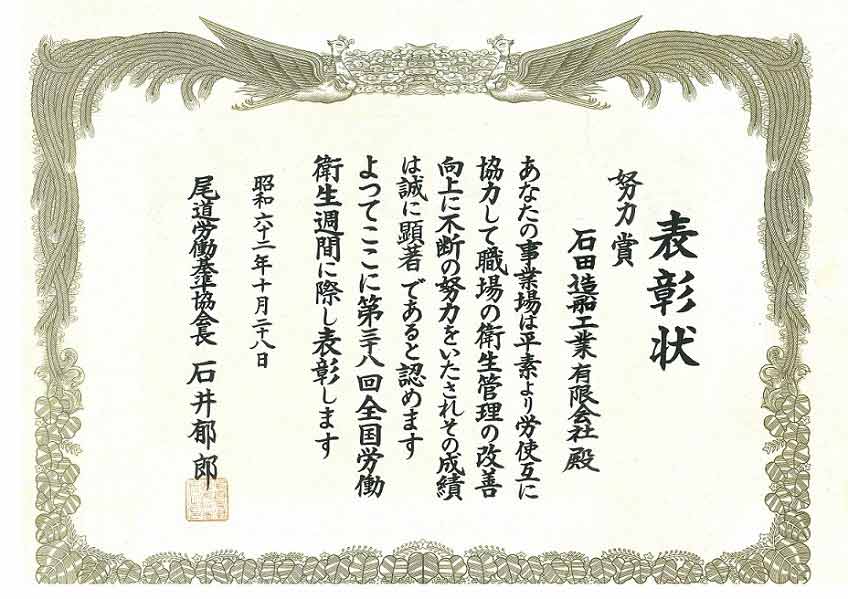 表彰状
努力賞
石田造船工業有限会社殿
あなたの事業場は平素より労使互に
協力して職場の衛生管理の改善
向上に不断の努力をいたされその成績
は誠に顕著であると認めます
よつてここに第三十八回全国労働
衛生週間に際し表彰します
昭和六十二年十月二十八日
尾道労働基準協会長 石井郁郎